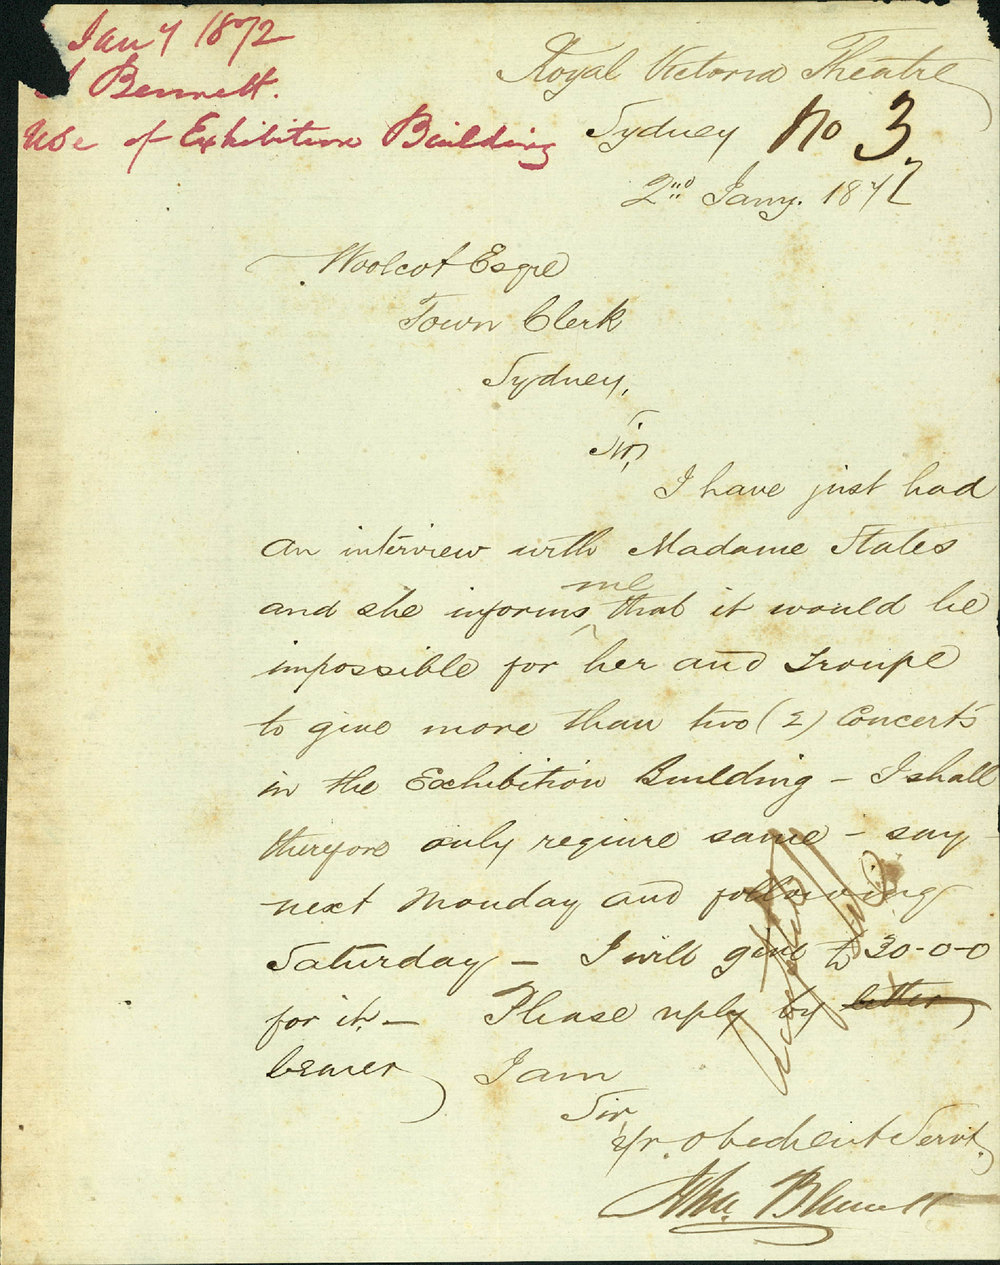 Jany 1872
Bennett.
Use of Exhibition Building
Royal Victoria Theatre
Sydney No 3.
2nd Jany. 1872
Woolcot Esqre
Town Clerk
Sydney,
Sir,
I have just had
an interview with Madame States
and she informs me that it would be
impossible for her and troupe
to give more than two (2) Concerts
in the Exhibition Building – I shall
therefore only require same – say –
next Monday and following
Saturday – I will give £ 30-0-0
for it. – Please reply by letter
bearer I am
Sir,
Yr. obedient Servt.
Bennett